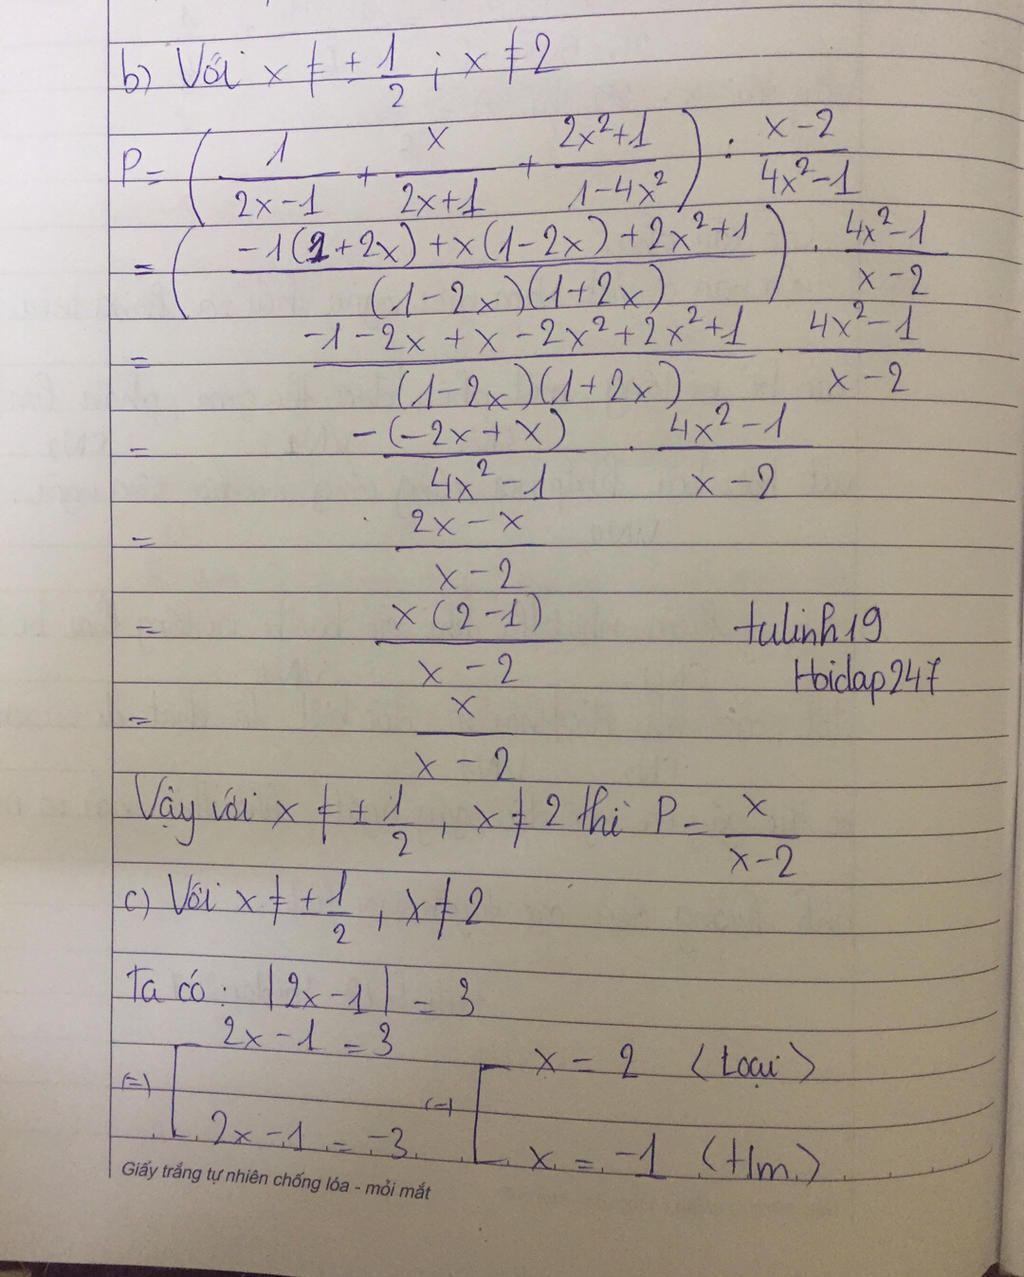 b) Với x ≠ ± 1/2 ; x ≠ 2
P = ( 1/(2x-1) + x/(2x+1) + (2x²+1)/(1-4x²) ) : (x-2)/(4x²-1)
= ( (-1(1+2x) + x(1-2x) + 2x²+1)/((1-2x)(1+2x)) ) . (4x²-1)/(x-2)
= (-1-2x+x-2x²+2x²+1)/((1-2x)(1+2x)) . (4x²-1)/(x-2)
= (-(-2x+x))/(4x²-1) . (4x²-1)/(x-2)
= (2x-x)/(x-2)
= (x(2-1))/(x-2)
tulinh19
Hoidap247
= x/(x-2)
Vậy với x ≠ ± 1/2 , x ≠ 2 thì P = x/(x-2)
c) Với x ≠ ± 1/2 , x ≠ 2
Ta có : |2x-1| = 3
(=) [ 2x-1 = 3 (=) [ x = 2 (Loại)
2x-1 = -3 x = -1 (t/m)
Giấy trắng tự nhiên chống lóa - mỏi mắt